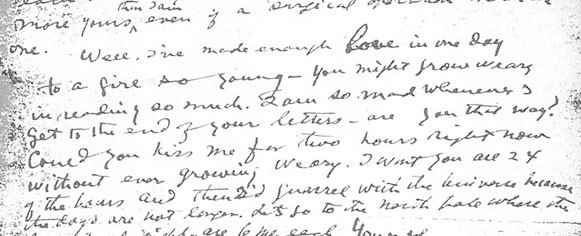 than I am
more yours, even if a surgical
one. Well, I've made enough love in one day
to a girl so young - you might grow weary
in reading so much. I am so mad whenever I
get to the end of your letters - are you that way?
Could you kiss me for two hours right now
without ever growing weary. I want you all 24
of the hours and then I'd quarrel with the universe because
the days are not longer. Let's go to the north pole where the
are 6 mo. each Yours